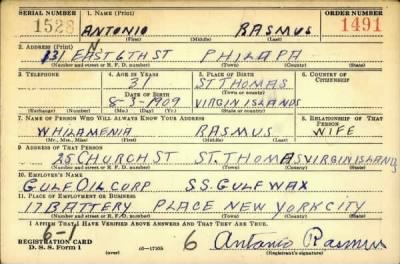 SERIAL NUMBER 1. NAME (Print) ORDER NUMBER
1528 ANTONIO RASMUS 1491
(First) (Middle) (Last)
2. ADDRESS (Print)
131 N EAST 6TH ST PHILA PA
(Number and street or R. F. D. number) (Town) (County) (State)
3. TELEPHONE 4. AGE IN YEARS 5. PLACE OF BIRTH 6. COUNTRY OF CITIZENSHIP
31 ST THOMAS
DATE OF BIRTH (Town or county)
8-3-1909 VIRGIN ISLANDS
(Exchange) (Number) (Mo.) (Day) (Yr.) (State or country)
7. NAME OF PERSON WHO WILL ALWAYS KNOW YOUR ADDRESS 8. RELATIONSHIP OF THAT PERSON
WHILAMENIA RASMUS WIFE
(Mr., Mrs., Miss) (First) (Middle) (Last)
9. ADDRESS OF THAT PERSON
25 CHURCH ST ST. THOMAS VIRGIN ISLANDS
(Number and street or R. F. D. number) (Town) (County) (State)
10. EMPLOYER'S NAME
GULF OIL CORP S.S. GULF WAX
11. PLACE OF EMPLOYMENT OR BUSINESS
17 BATTERY PLACE NEW YORK CITY
(Number and street or R. F. D. number) (Town) (County) (State)
I AFFIRM THAT I HAVE VERIFIED ABOVE ANSWERS AND THAT THEY ARE TRUE.
6-1 6 Antonio Rasmus
REGISTRATION CARD
D. S. S. Form 1 (over) 16-17105 (Registrant's signature)